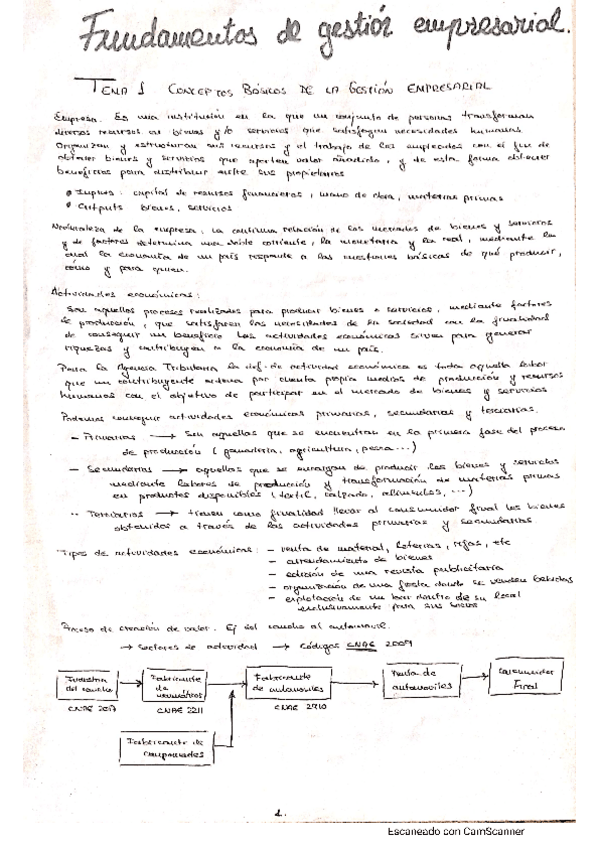 Fundamentos de gestión empresarial.
TEMA 1 CONCEPTOS BÁSICOS DE LA GESTIÓN EMPRESARIAL
Empresa. Es una institución en la que un conjunto de personas transforman
diversos recursos en bienes y/o servicios que satisfagan necesidades humanas.
Organizan y estructuran sus recursos y el trabajo de los empleados con el fin de
obtener bienes y servicios que aporten valor añadido, y de esta forma obtener
beneficios para distribuir entre sus propietarios
• Inputs: capital de recursos financieros, mano de obra, materias primas
• Outputs bienes, servicios
Naturaleza de la empresa: La continua relación de los mercados de bienes y servicios
y de factores determina una doble corriente, la monetaria y la real, mediante la
cual la economía de un país responde a las cuestiones básicas de qué producir,
cómo y para quien.
Actividades económicas:
Son aquellos procesos realizados para producir bienes o servicios, mediante factores
de producción, que satisfacen las necesidades de la sociedad con la finalidad
de conseguir un beneficio las actividades económicas sirven para generar
riquezas y contribuyen a la economía de un país.
Para la Agencia Tributaria la def. de actividad económica es toda aquella labor
que un contribuyente ordena por cuenta propia medios de producción y recursos
humanos con el objetivo de participar en el mercado de bienes y servicios
Podemos conseguir actividades económicas primarias, secundarias y terciarias.
- Primarias → Son aquellas que se encuentran en la primera fase del proceso
de producción (ganadería, agricultura, pesca...)
- Secundarias → aquellas que se encargan de producir los bienes y servicios
mediante labores de producción y transformación de materias primas
en productos disponibles (textil, calzado, alimentos, ...)
- Terciarias → tienen como finalidad llevar al consumidor final los bienes
obtenidos a través de las actividades primarias y secundarias
Tipos de actividades económicas: - venta de material, loterías, rifas, etc
- arrendamiento de bienes
- edición de una revista publicitaria
- organización de una fiesta donde se venden bebidas
- explotación de un bar dentro de su local
exclusivamente para sus socios
Proceso de creación de valor. Ej del caucho al automóvil.
→ Sectores de actividad → Códigos CNAE 2009
Industria del caucho
CNAE 2017
Fabricante de neumáticos
CNAE 2211
Fabricante de automóviles
CNAE 2910
Venta de automoviles
Consumidor Final
Fabricante de
1.
Escaneado con CamScanner